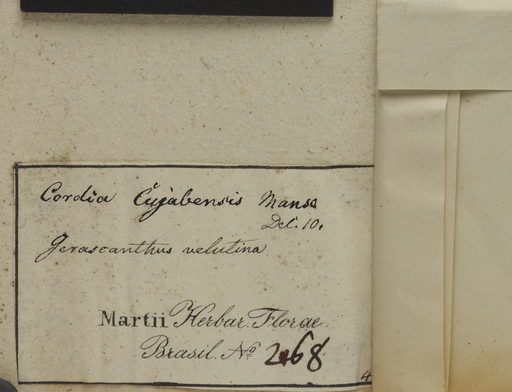 Cordia Cujabensis Manso
Det. 10.
Gerascanthus velutina
Martii Herbar. Florae
Brasil. No 268
4